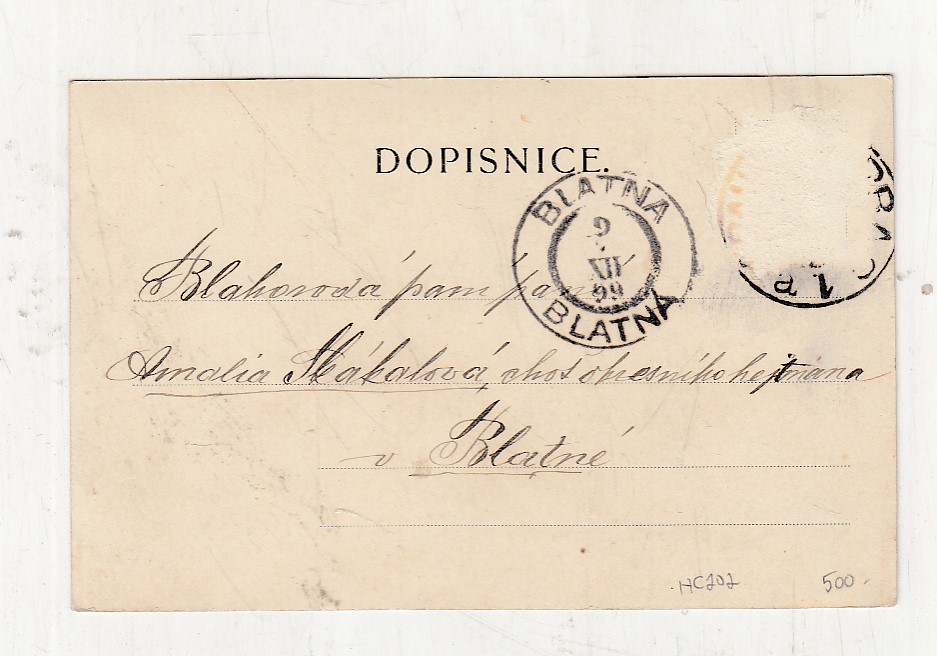 DOPISNICE.
BLATNA
9
XII
99
BLATNA
PRAG
1
Blahorodá paní paní
Amalia Skákalová, choť okresního hejtmana
v Blatné
HC202
500 -